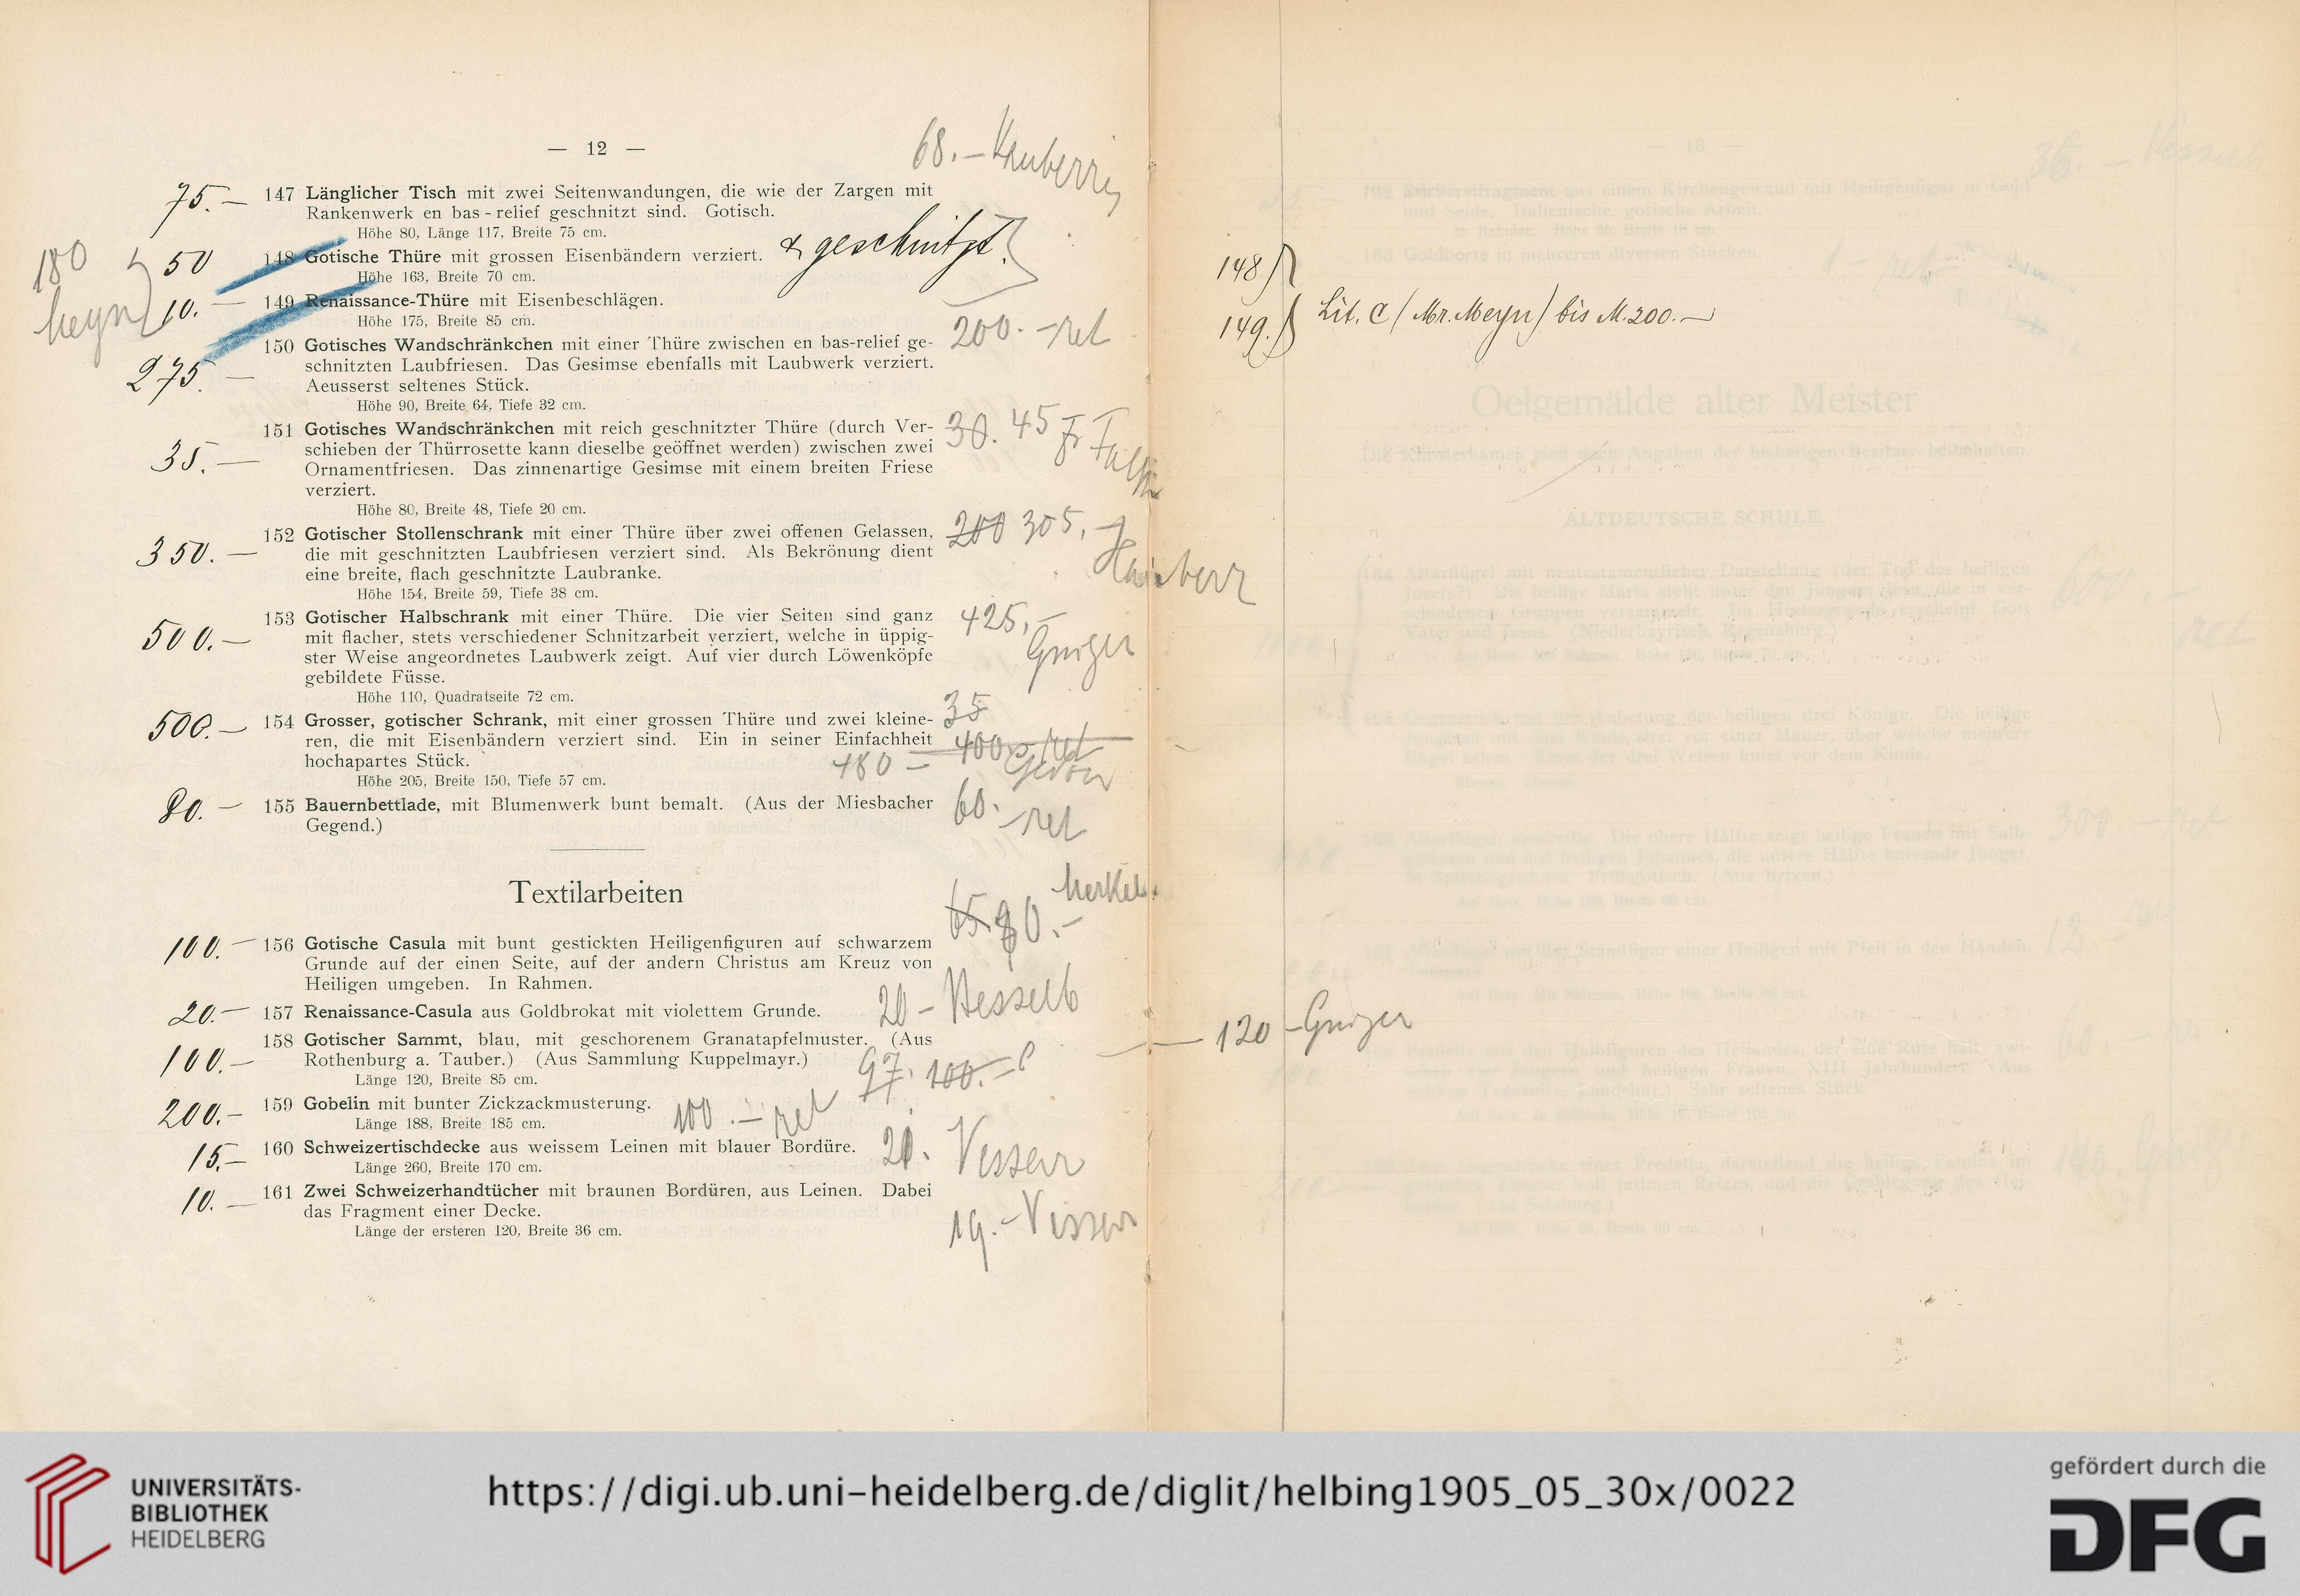 — 12 —
68.—
75.— 147 Länglicher Tisch mit zwei Seitenwandungen, die wie der Zargen mit
Rankenwerk en bas-relief geschnitzt sind. Gotisch.
Höhe 80, Länge 117, Breite 75 cm.
180
50 148 Gotische Thüre mit grossen Eisenbändern verziert. & geschnitzt.
Höhe 163, Breite 70 cm.
Meyn 10.— 149 Renaissance-Thüre mit Eisenbeschlägen.
Höhe 175, Breite 85 cm.
275.— 150 Gotisches Wandschränkchen mit einer Thüre zwischen en bas-relief ge- 200.— ret
schnitzten Laubfriesen. Das Gesimse ebenfalls mit Laubwerk verziert.
Aeusserst seltenes Stück.
Höhe 90, Breite 64, Tiefe 32 cm.
35.— 151 Gotisches Wandschränkchen mit reich geschnitzter Thüre (durch Ver- 30. 45
schieben der Thürrosette kann dieselbe geöffnet werden) zwischen zwei
Ornamentfriesen. Das zinnenartige Gesimse mit einem breiten Friese
verziert.
Höhe 80, Breite 48, Tiefe 20 cm.
350.— 152 Gotischer Stollenschrank mit einer Thüre über zwei offenen Gelassen, 200 305.—
die mit geschnitzten Laubfriesen verziert sind. Als Bekrönung dient
eine breite, flach geschnitzte Laubranke.
Höhe 154, Breite 59, Tiefe 38 cm.
500.— 153 Gotischer Halbschrank mit einer Thüre. Die vier Seiten sind ganz 425,—
mit flacher, stets verschiedener Schnitzarbeit verziert, welche in üppig-
ster Weise angeordnetes Laubwerk zeigt. Auf vier durch Löwenköpfe
gebildete Füsse.
Höhe 110, Quadratseite 72 cm.
500.— 154 Grosser, gotischer Schrank, mit einer grossen Thüre und zwei kleine- 35
ren, die mit Eisenbändern verziert sind. Ein in seiner Einfachheit 400 ret
hochapartes Stück. 480 —
Höhe 205, Breite 150, Tiefe 57 cm.
80.— 155 Bauernbettlade, mit Blumenwerk bunt bemalt. (Aus der Miesbacher 60.— ret
Gegend.)
Textilarbeiten
65 80.— Merkel
100.— 156 Gotische Casula mit bunt gestickten Heiligenfiguren auf schwarzem
Grunde auf der einen Seite, auf der andern Christus am Kreuz von
Heiligen umgeben. In Rahmen.
20.— 157 Renaissance-Casula aus Goldbrokat mit violettem Grunde. 20 —
100.— 158 Gotischer Sammt, blau, mit geschorenem Granatapfelmuster. (Aus
Rothenburg a. Tauber.) (Aus Sammlung Kuppelmayr.) 97. 100.—
Länge 120, Breite 85 cm.
200.— 159 Gobelin mit bunter Zickzackmusterung. 100.— ret
Länge 188, Breite 185 cm.
15.— 160 Schweizertischdecke aus weissem Leinen mit blauer Bordüre.
Länge 260, Breite 170 cm.
10.— 161 Zwei Schweizerhandtücher mit braunen Bordüren, aus Leinen. Dabei
das Fragment einer Decke. 19.—
Länge der ersteren 120, Breite 36 cm.
148
149. Lit. C (Mr. Meyn) bis M. 200.—
— 120 —
UNIVERSITÄTS-
BIBLIOTHEK
HEIDELBERG
https://digi.ub.uni-heidelberg.de/diglit/helbing1905_05_30x/0022
gefördert durch die
DFG